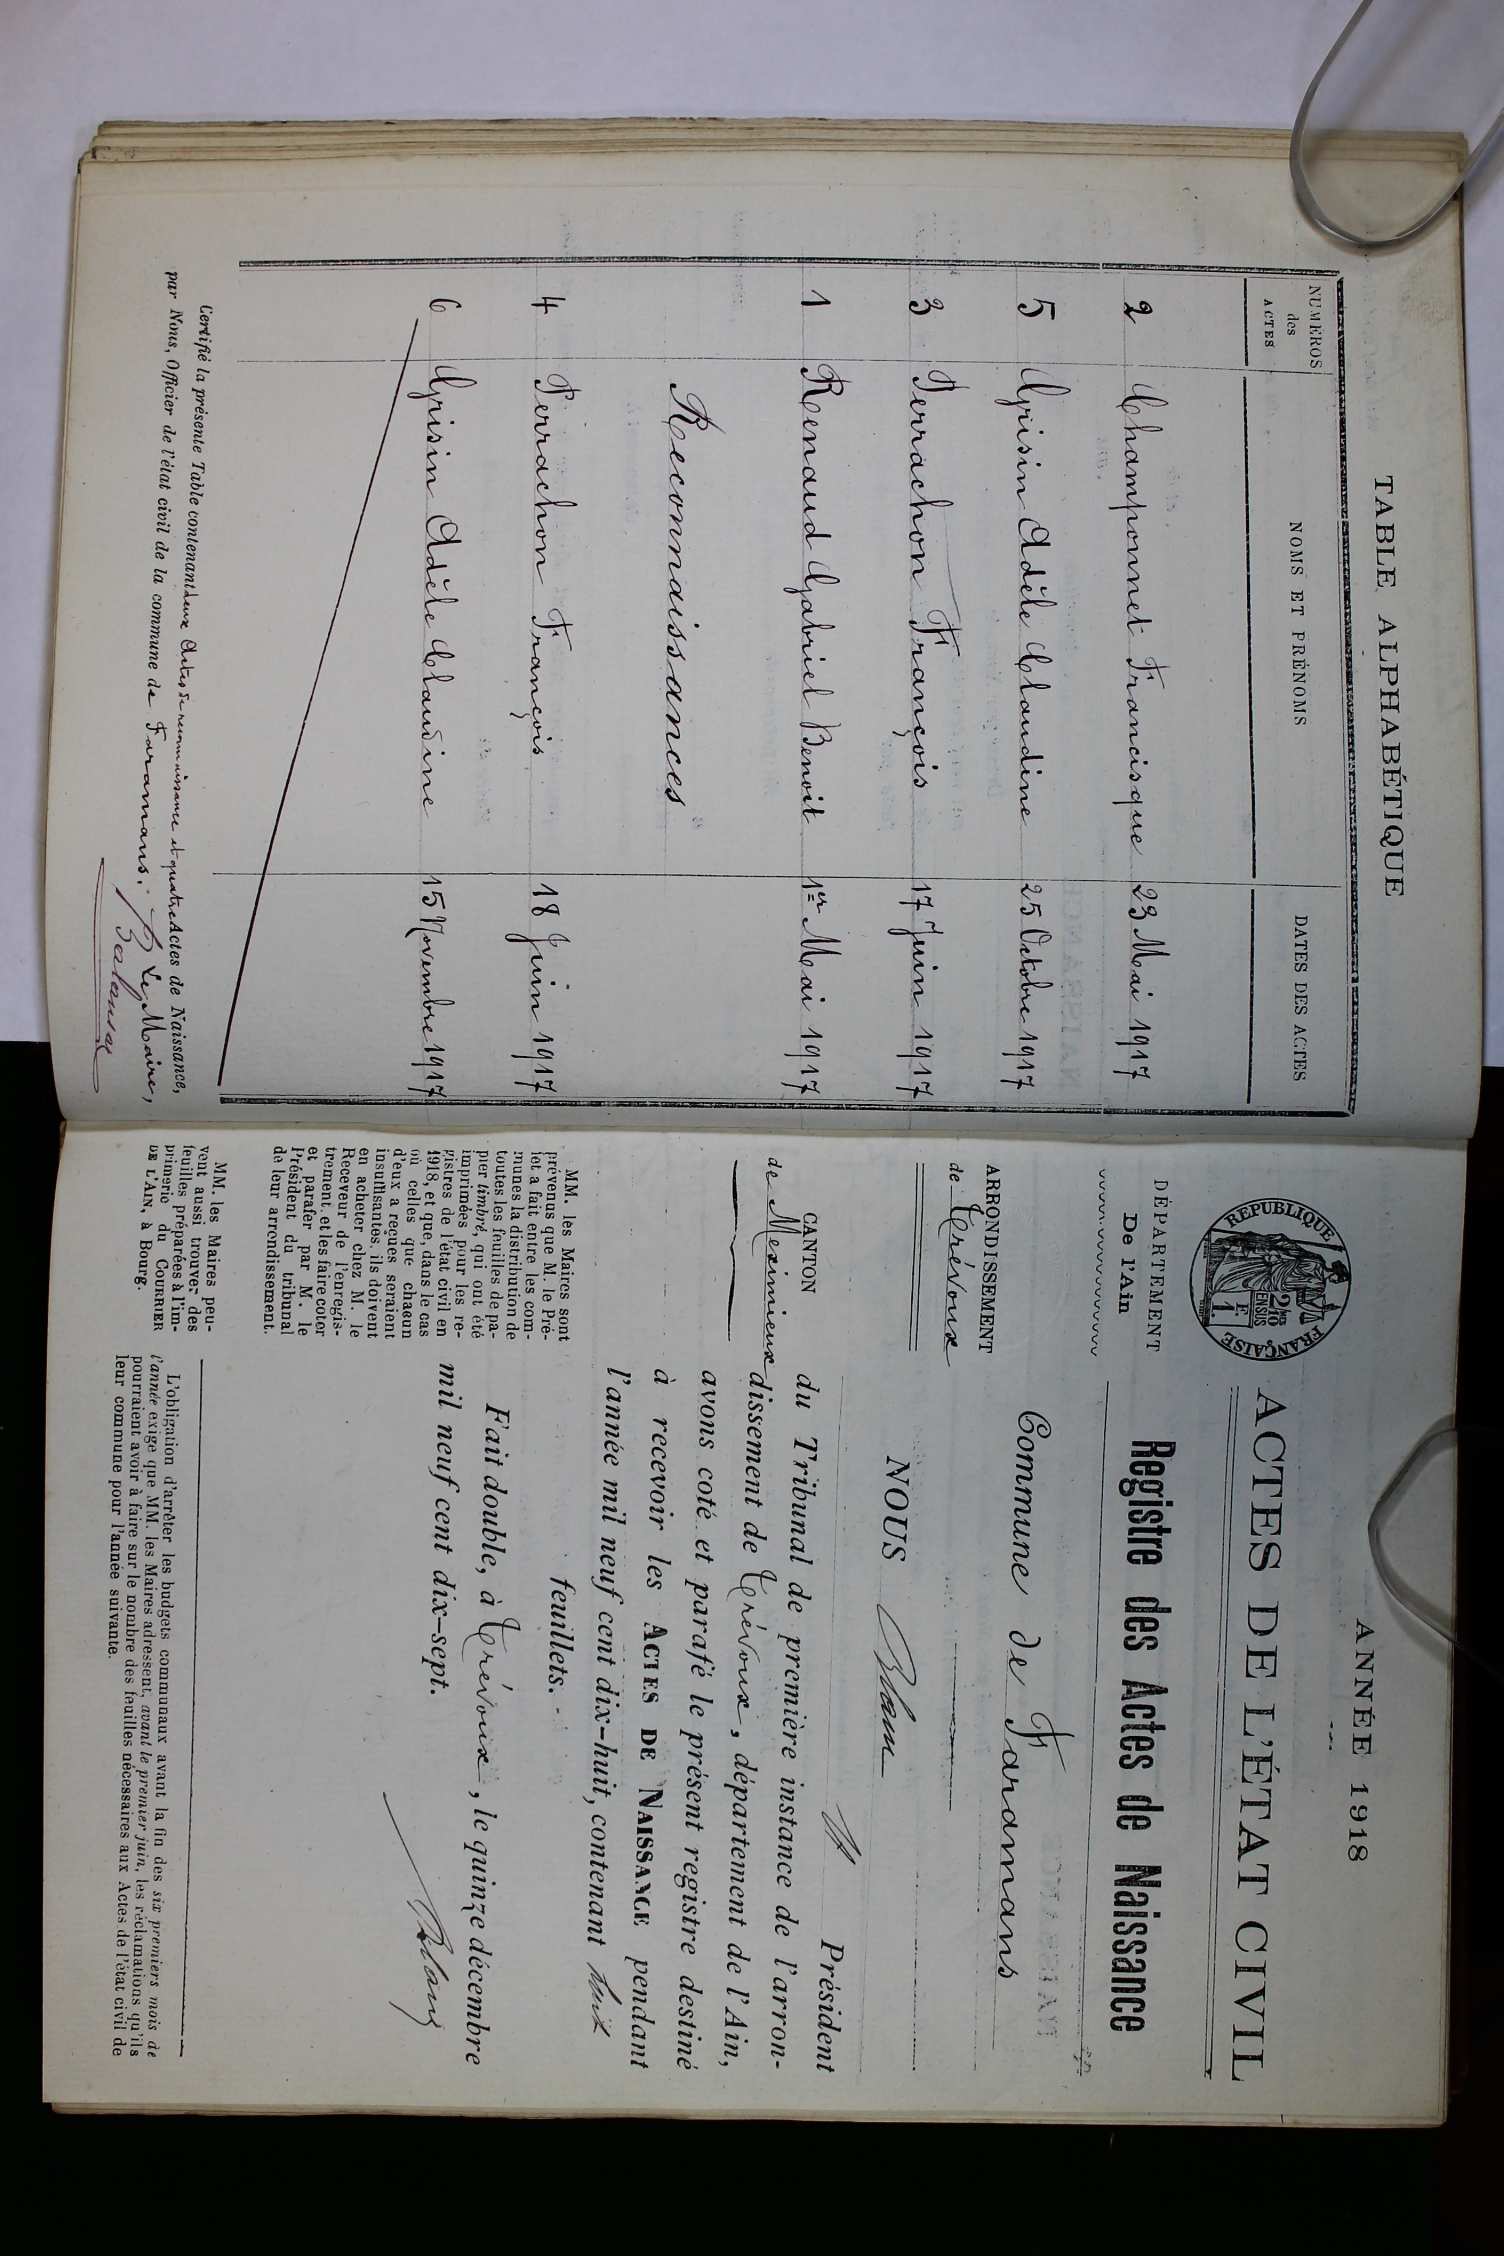 TABLE ALPHABÉTIQUE
NUMÉROS
des
ACTES
NOMS ET PRÉNOMS
DATES DES ACTES
2 Champonnet Francisque 23 Mai 1917
5 Grisin Adèle Claudine 25 Octobre 1917
3 Perrachon François 17 Juin 1917
1 Renaud Gabriel Benoit 1er Mai 1917
Reconnaissances
4 Perrachon François 18 Juin 1917
6 Grisin Adèle Claudine 15 Novembre 1917
Certifié la présente Table contenant deux Actes de reconnaissance et quatre Actes de Naissance,
par Nous, Officier de l'état civil de la commune de Faramans. Le Maire,
ANNÉE 1918
RÉPUBLIQUE FRANÇAISE
2/10es
EN SUS
1 F.
ACTES DE L'ÉTAT CIVIL
DÉPARTEMENT
De l'Ain
Registre des Actes de Naissance
ARRONDISSEMENT
de Trévoux
Commune de Faramans
CANTON
de Meximieux
NOUS
Président
du Tribunal de première instance de l'arron-
dissement de Trévoux, département de l'Ain,
avons coté et parafé le présent registre destiné
à recevoir les ACTES DE NAISSANCE pendant
l'année mil neuf cent dix-huit, contenant
feuillets.
Fait double, à Trévoux, le quinze décembre
mil neuf cent dix-sept.
MM. les Maires sont
prévenus que M. le Pré-
fet a fait entre les com-
munes la distribution de
toutes les feuilles de pa-
pier timbré, qui ont été
imprimées pour les re-
gistres de l'état civil en
1918, et que, dans le cas
où celles que chacun
d'eux a reçues seraient
insuffisantes, ils doivent
en acheter chez M. le
Receveur de l'enregis-
trement, et les faire coter
et parafer par M. le
Président du tribunal
de leur arrondissement.
MM. les Maires peu-
vent aussi trouver des
feuilles préparées à l'im-
primerie du COURRIER
DE L'AIN, à Bourg.
L'obligation d'arrêter les budgets communaux avant la fin des six premiers mois de
l'année exige que MM. les Maires adressent, avant le premier juin, les réclamations qu'ils
pourraient avoir à faire sur le nombre des feuilles nécessaires aux Actes de l'état civil de
leur commune pour l'année suivante.